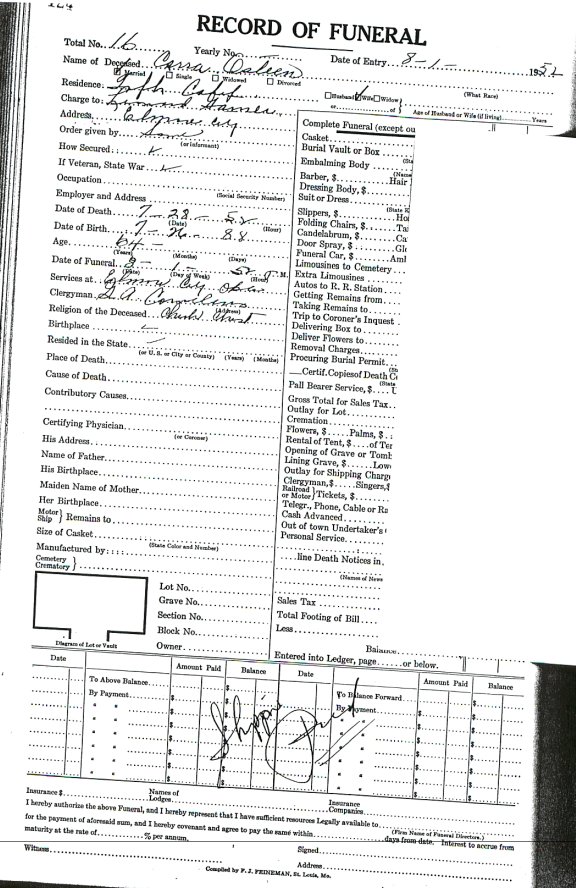 RECORD OF FUNERAL
Total No. 16 Yearly No. Date of Entry 8-1- 1952
Name of Deceased
Married Single Widowed Divorced
Residence: Calif Husband Wife Widow or (What Race)
Charge to: Age of Husband or Wife (if living) Years
Address City
Order given by
(or informant)
How Secured
If Veteran, State War
Occupation
(Social Security Number)
Employer and Address
Date of Death 7-28-52
(Date) (Hour)
Date of Birth 7-26-88
Age 64-
(Years) (Months) (Days)
Date of Funeral 8-1-52 M.
(Date) (Day of Week) (Hour)
Services at City
(Address)
Clergyman
Religion of the Deceased Christ
Birthplace
Resided in the State
(or U. S. or City or County) (Years) (Months)
Place of Death
Cause of Death
Contributory Causes
Certifying Physician
(or Coroner)
His Address
Name of Father
His Birthplace
Maiden Name of Mother
Her Birthplace
Motor Ship } Remains to
Size of Casket
(State Color and Number)
Manufactured by
Cemetery Crematory }
Complete Funeral (except ou
Casket
Burial Vault or Box
Embalming Body
(Name
Barber, $ Hair
Dressing Body, $
Suit or Dress
Slippers, $
Folding Chairs, $ Ta
Candelabrum, $ Ca
Door Spray, $
Funeral Car, $
Limousines to Cemetery
Extra Limousines
Autos to R. R. Station
Getting Remains from
Taking Remains to
Trip to Coroner's Inquest
Delivering Box to
Deliver Flowers to
Removal Charges
Procuring Burial Permit
—Certif. Copies of Death
Pall Bearer Service, $
Gross Total for Sales Tax
Outlay for Lot
Cremation
Flowers, $ Palms, $
Rental of Tent, $ of Ter
Opening of Grave or Tomb
Lining Grave, $ Low
Outlay for Shipping Charg
Clergyman, $ Singers, $
Railroad or Motor } Tickets, $
Telegr., Phone, Cable or Ra
Cash Advanced
Out of town Undertaker's
Personal Service
line Death Notices in
(Names of News
Sales Tax
Total Footing of Bill
Less
Balance
Entered into Ledger, page or below.
Lot No.
Grave No.
Section No.
Block No.
Owner
Diagram of Lot or Vault
Date Amount Paid Balance Date Amount Paid Balance
To Above Balance $ $ To Balance Forward $ $
By Payment By Payment
Paid
Insurance $ Names of Lodges Insurance Companies
I hereby authorize the above Funeral, and I hereby represent that I have sufficient resources Legally available to
(Firm Name of Funeral Directors.)
for the payment of aforesaid sum, and I hereby covenant and agree to pay the same within days from date. Interest to accrue from
maturity at the rate of % per annum.
Witness Signed
Address
Compiled by F. J. FEINEMAN, St. Louis, Mo.